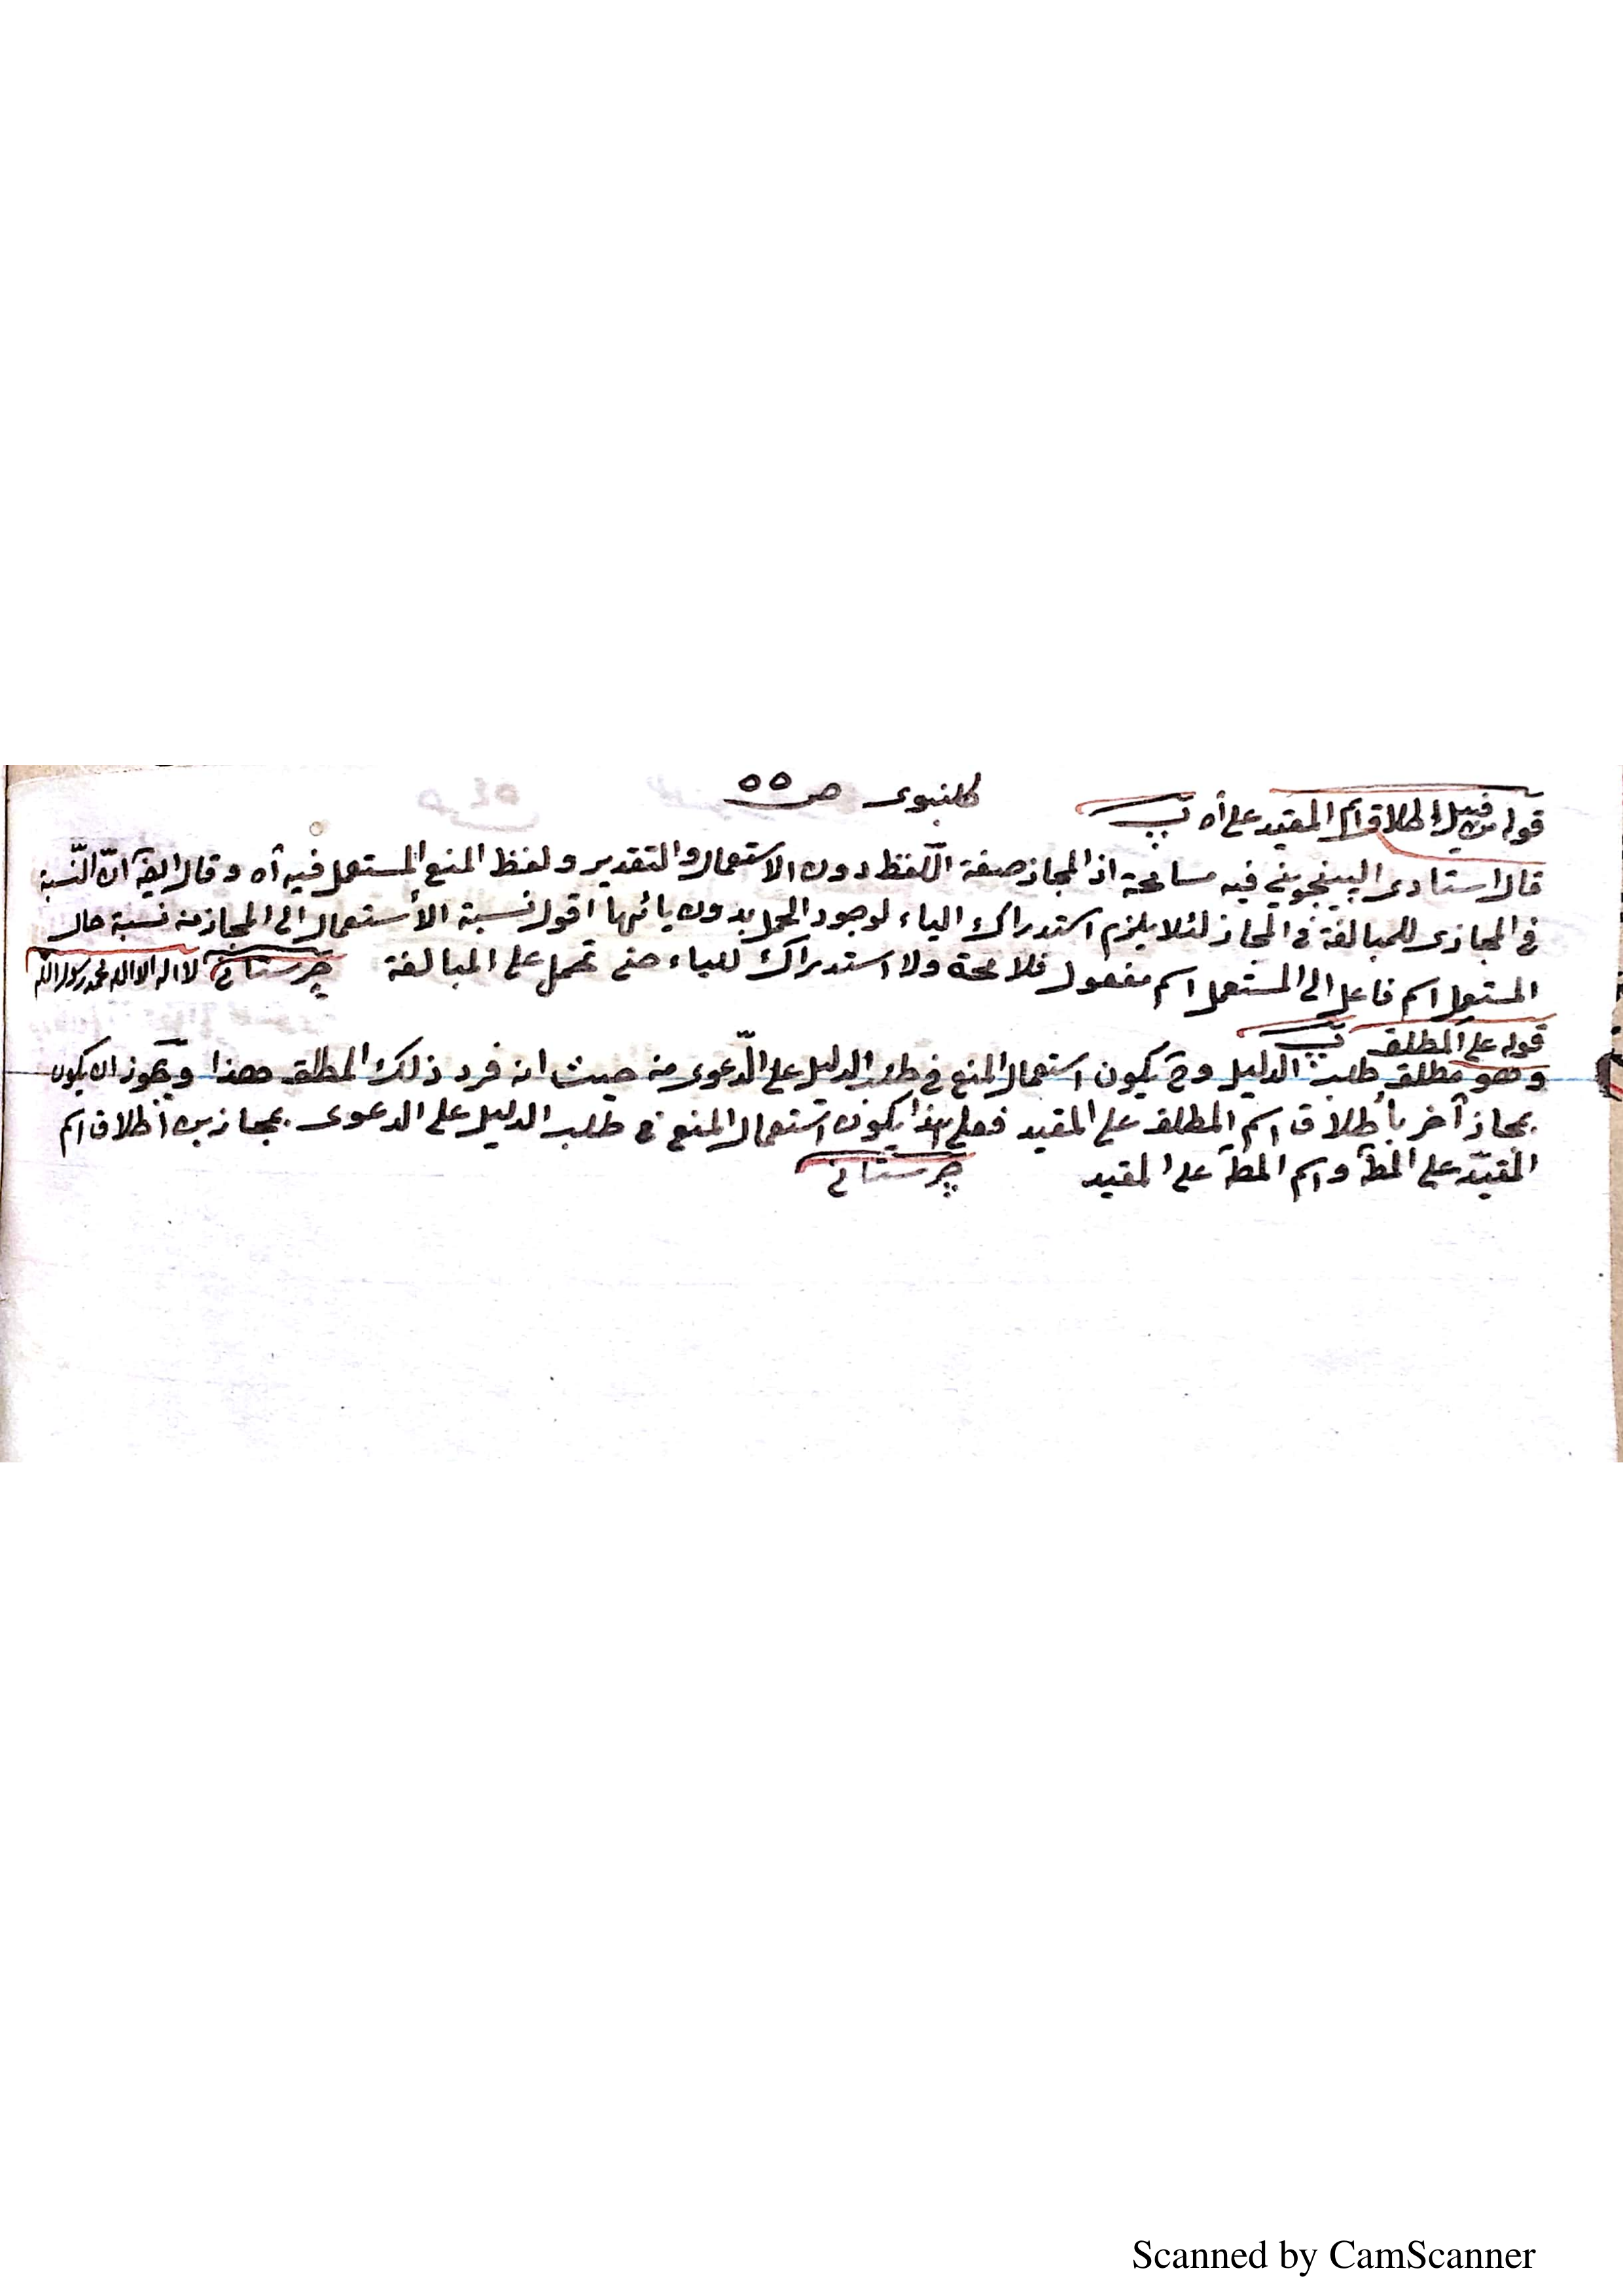 كلنبوى ص ٥٥
قوله من قبيل اطلاق اسم المقيد على أه
قال استادى البينجوينى فيه مسامحة اذ المجاز صفة اللّفظ دون الاستعمال والتقدير ولفظ المنع المستعمل فيه أه وقال انّ النّسبة
فى المجازى للمبالغة فى المجاز لئلا يلزم استدراك الياء لوجود الحمل بدون يائها اقول نسبة الأستعمال الى المجاز من نسبة حال
المستعمل اسم فاعل الى المستعمل اسم مفعول فلا محة ولا استدراك للياء حتى تحمل على المبالغة چرستانى لا اله الا الله محمد رسول الله
قوله على المطلق
وهو مطلق طلب الدليل وح يكون استعمال المنع فى طلب الدليل على الدّعوى من حيث انه فرد ذلك المطلق هذا ويجوز ان يكون
بمجاز آخر بأطلاق اسم المطلق على المقيد فعلى هذا يكون استعمال المنع فى طلب الدليل على الدعوى بمجازين اطلاق اسم
المقيّد على المط واسم المط على المقيد چرستانى
Scanned by CamScanner